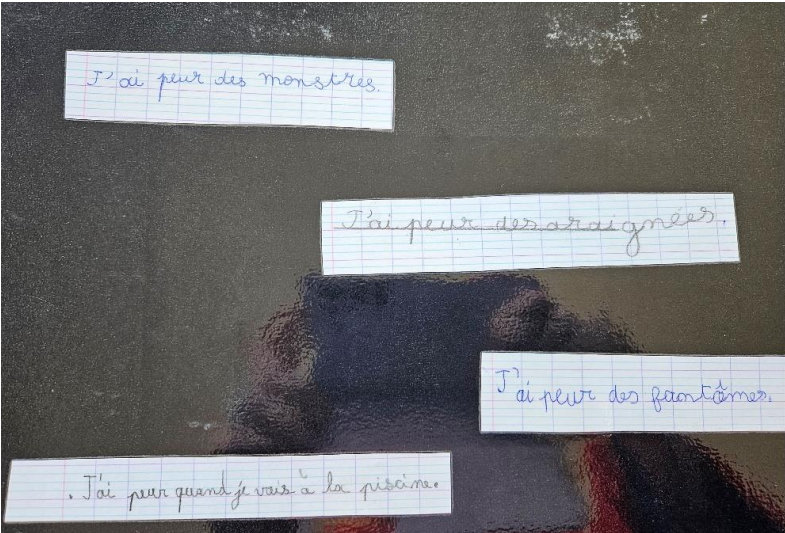 J'ai peur des monstres.
J'ai peur des araignées.
J'ai peur des fantômes.
. J'ai peur quand je vais à la piscine.